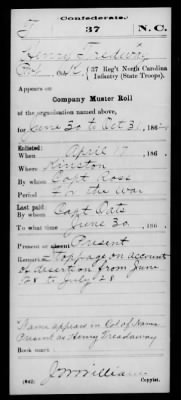 Confederate.
T 37 N.C.
Henry Tredway
Pvt, Co. C, 37 Reg't North Carolina
Infantry (State Troops).
Appears on
Company Muster Roll
of the organization named above,
for June 30 to Oct 31, 186
Enlisted:
When April 17, 186
Where Kinston
By whom Capt Ross
Period For the war
Last paid:
By whom Capt Oats
To what time June 30, 186
Present or absent Present
Remarks: Stoppage on account
of desertion from June
28 to July 28
Name appears in Col of Names
Present as Henry Treadaway
Book mark:
J W William
(642) Copyist.